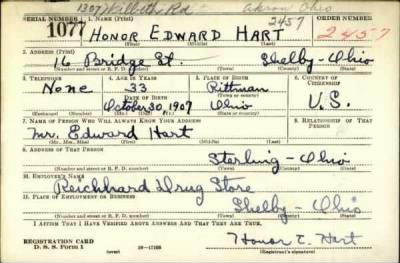 1307 Wilbeth Rd. Akron Ohio
SERIAL NUMBER 1. NAME (Print) 2457 ORDER NUMBER (Print)
1077 HONOR EDWARD HART 2457
(First) (Middle) (Last)
2. ADDRESS (Print)
16 Bridge St. Shelby - Ohio
(Number and street or R. F. D. number) (Town) (County) (State)
3. TELEPHONE 4. AGE IN YEARS 5. PLACE OF BIRTH 6. COUNTRY OF CITIZENSHIP
None 33 Rittman
DATE OF BIRTH (Town or county)
October 30, 1907 Ohio U.S.
(Exchange) (Number) (Mo.) (Day) (Yr.) (State or country)
7. NAME OF PERSON WHO WILL ALWAYS KNOW YOUR ADDRESS 8. RELATIONSHIP OF THAT PERSON
Mr. Edward Hart
(Mr., Mrs., Miss) (First) (Middle) (Last)
9. ADDRESS OF THAT PERSON
Sterling - Ohio
(Number and street or R. F. D. number) (Town) (County) (State)
10. EMPLOYER'S NAME
Reichhard Drug Store
11. PLACE OF EMPLOYMENT OR BUSINESS
Shelby - Ohio
(Number and street or R. F. D. number) (Town) (County) (State)
I AFFIRM THAT I HAVE VERIFIED ABOVE ANSWERS AND THAT THEY ARE TRUE.
REGISTRATION CARD
D. S. S. Form 1 (over) 16-17105 Honor E. Hart
(Registrant's signature)